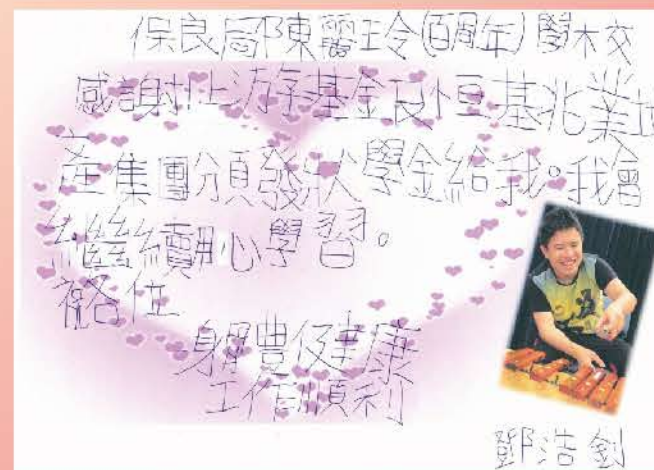 保良局陳麗玲(百周年)學校
感謝扯浮基金及恒基兆業地
產集團頒發獎學金給我。我會
繼續用心學習。
祝各位
身體健康
工作順利
鄧浩釗